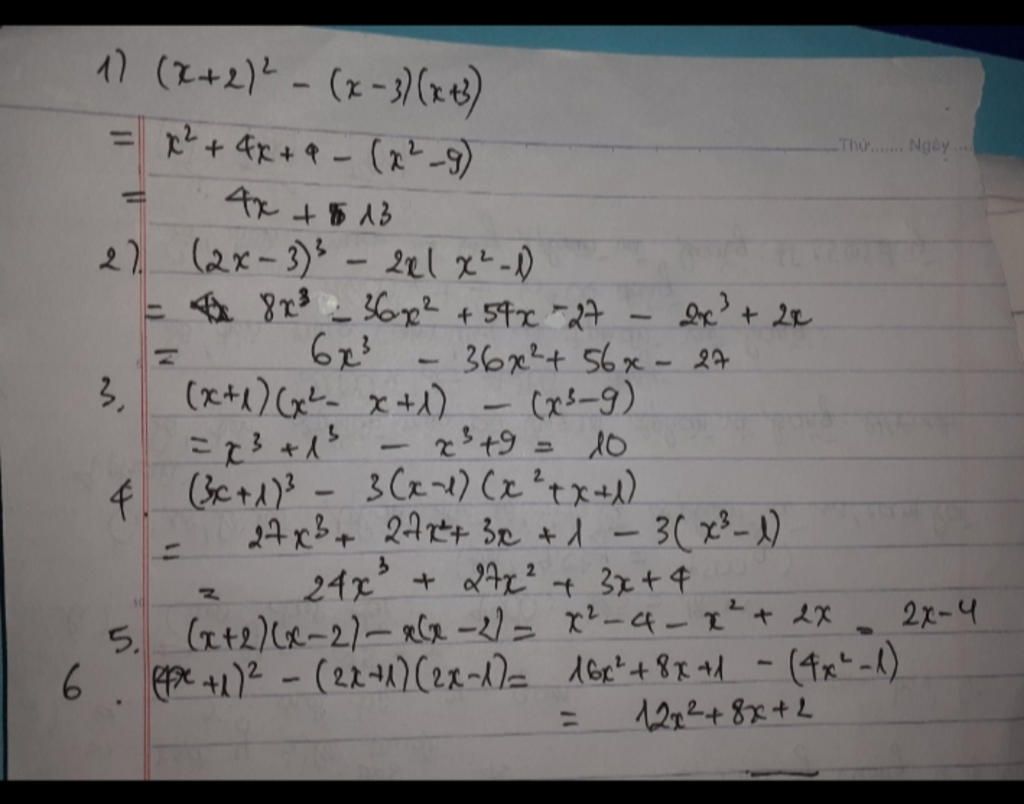 1) (x+2)² - (x-3)(x+3)
Thứ....... Ngày....
= x² + 4x + 4 - (x² - 9)
= 4x + 13
2). (2x-3)³ - 2x( x² - 1)
= 8x³ - 36x² + 54x - 27 - 2x³ + 2x
= 6x³ - 36x² + 56x - 27
3. (x+1)(x² - x+1) - (x³-9)
= x³ + 1³ - x³+9 = 10
4. (3x+1)³ - 3(x-1)(x²+x+1)
= 27x³ + 27x² + 3x + 1 - 3(x³-1)
= 24x³ + 27x² + 3x + 4
5. (x+2)(x-2) - x(x-2) = x² - 4 - x² + 2x = 2x-4
6. (4x+1)² - (2x+1)(2x-1) = 16x² + 8x+1 - (4x²-1)
= 12x² + 8x + 2